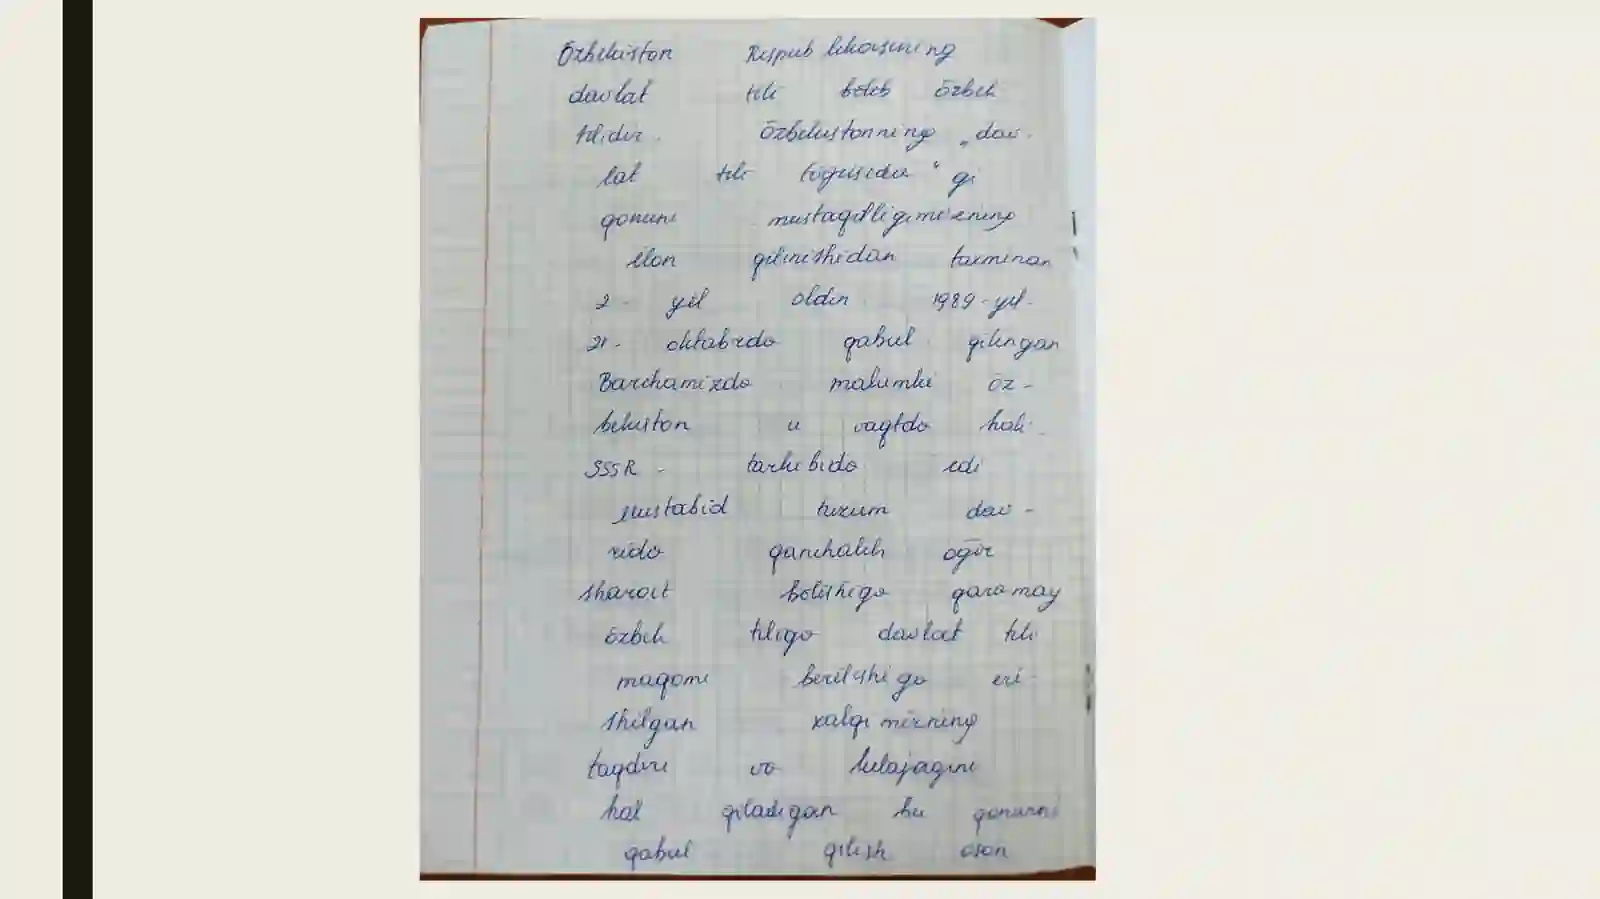 Ōzbekiston Respublikasining
davlat tili bōlib ōzbek
tilidir. Ōzbekistonning „dav-
lat tili tōgrisida“ gi
qonuni mustaqilligimizning
ilon qilinishidan taxminan
2- yil oldin 1989-yil-
21- oktabrda qabul qilingan
Barchamizda malumki ōz-
bekiston u vaqtda hali
SSSR - tarkibida edi
Mustabid tuzum dav-
rida qanchalik ogir
sharoit bōlishiga qaramay
ōzbek tiliga davlat tili
maqomi berilishiga eri-
shilgan xalqimizning
taqdiri va kelajagini
hal qiladigan bu qonunni
qabul qilish oson